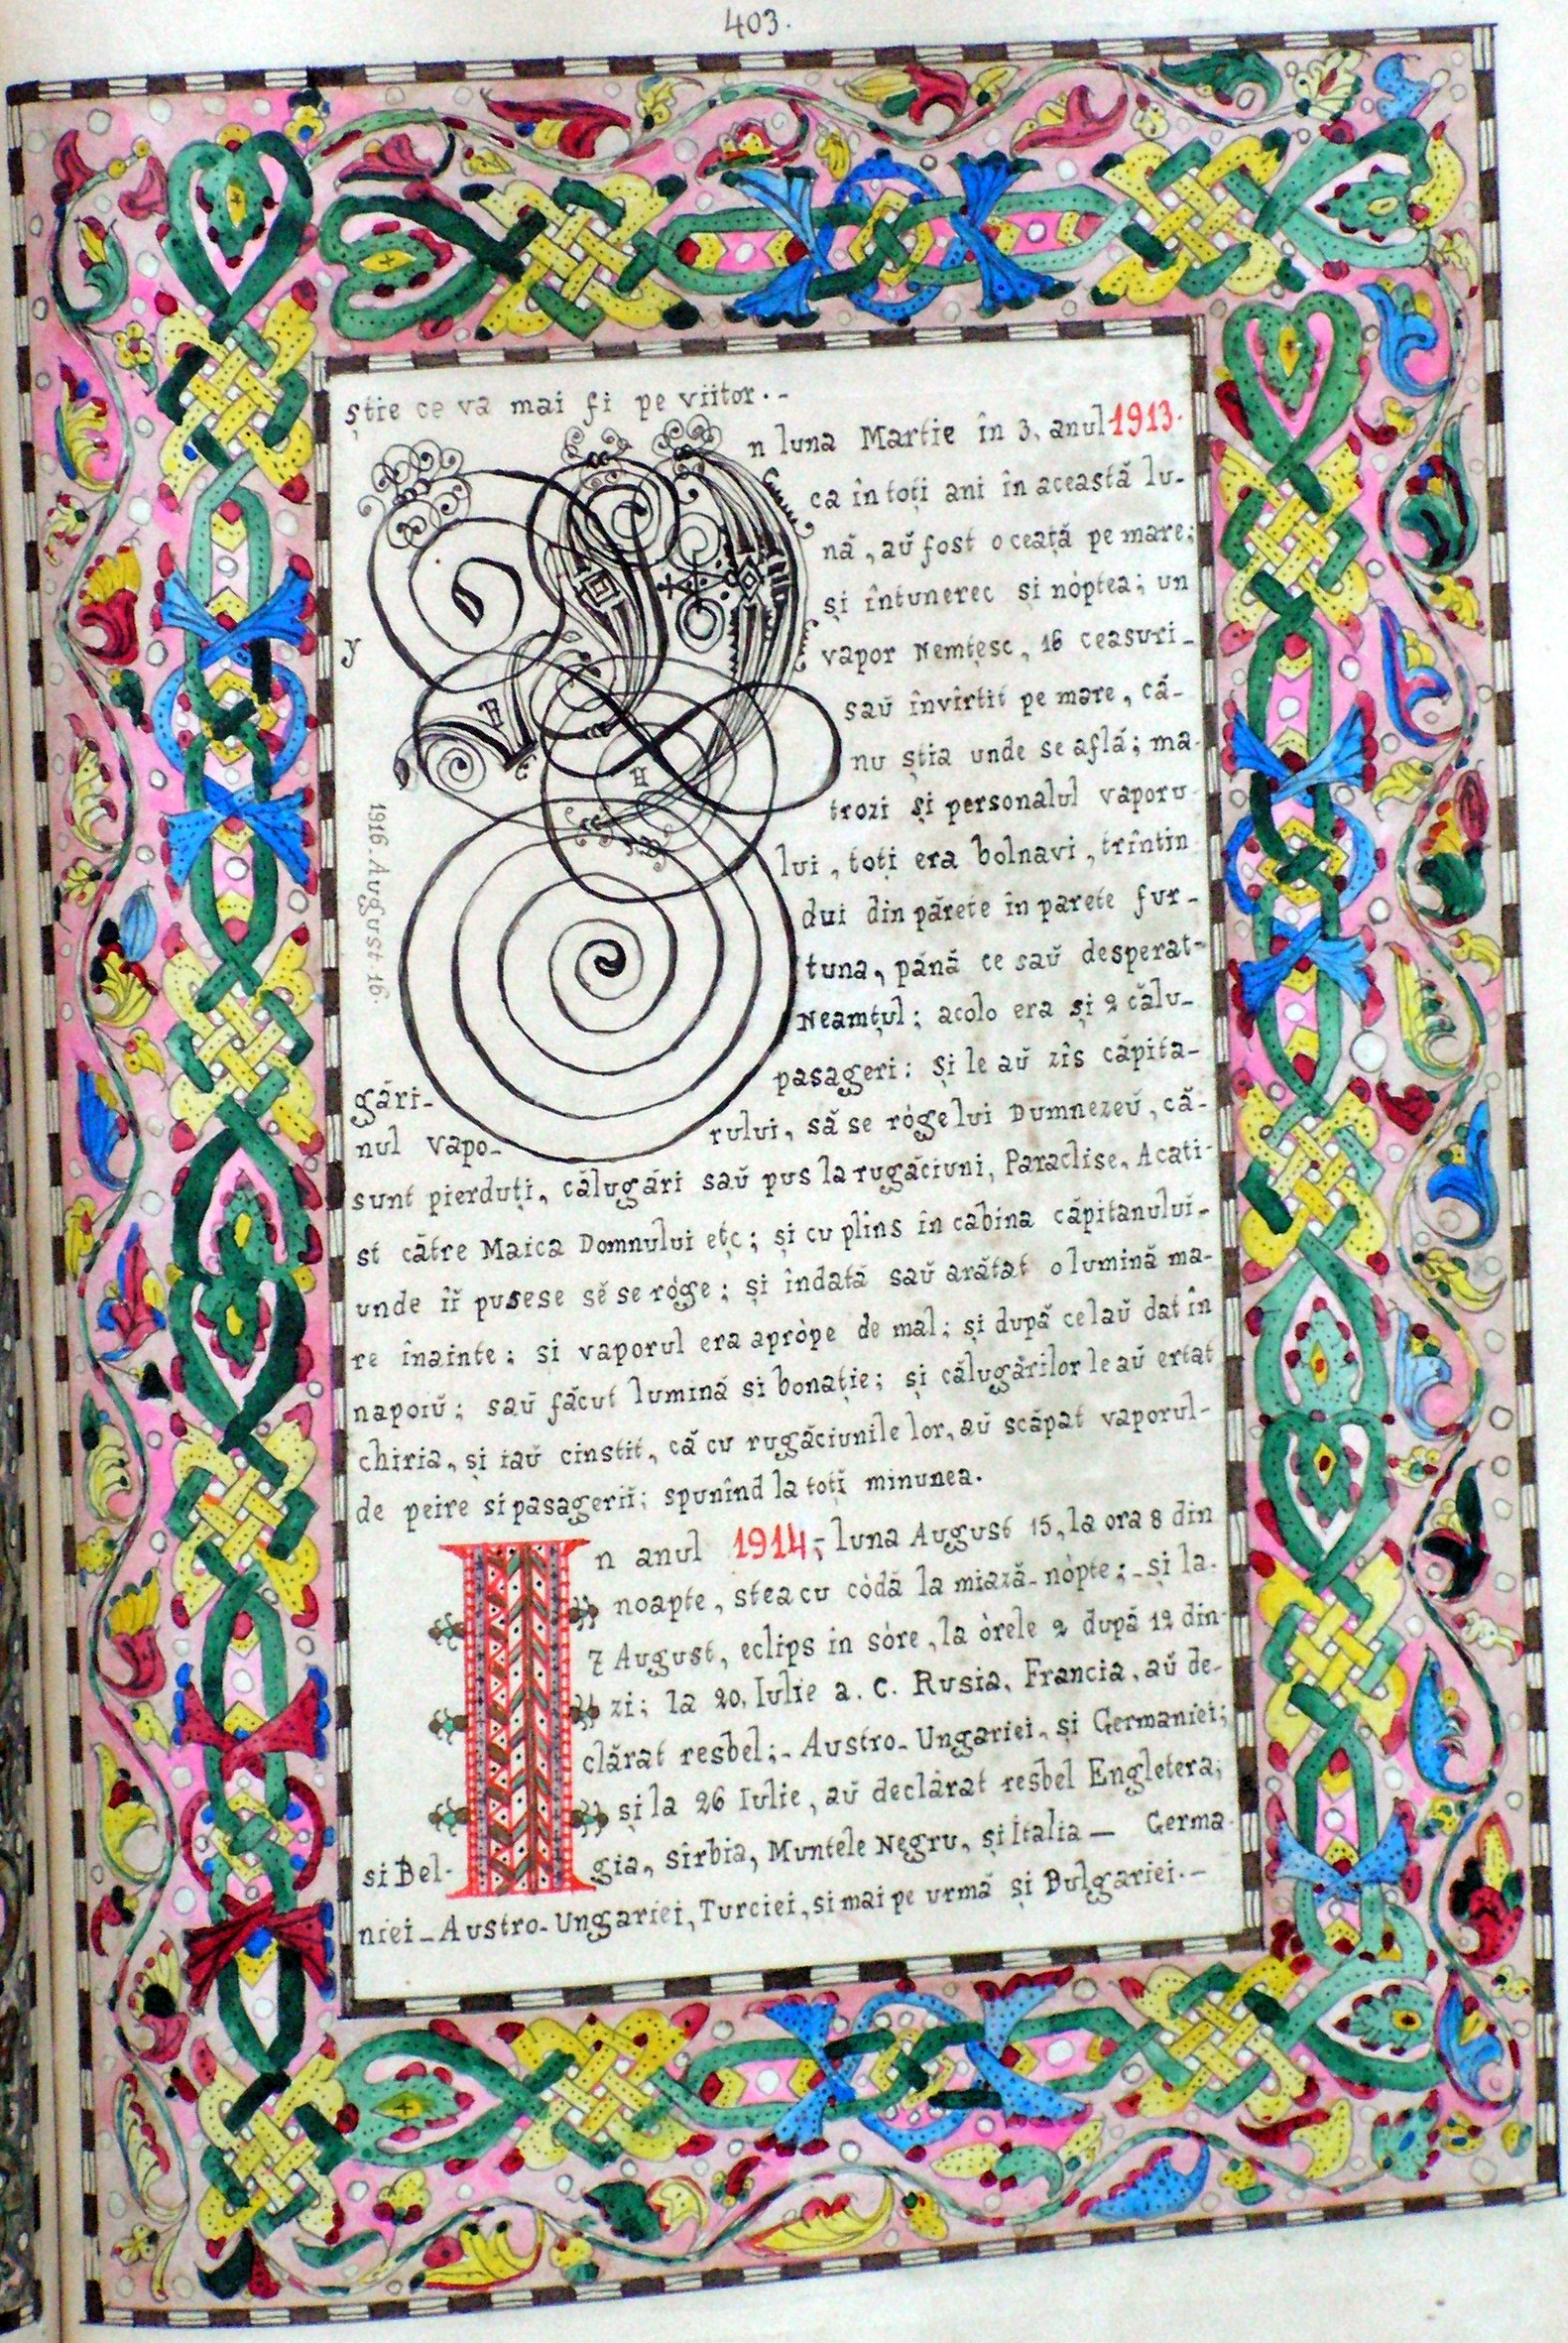 403.
știe ce va mai fi pe viitor.-
n luna Martie în 3, anul 1913.
ca în toți ani în această lu-
nă, aŭ fost o ceață pe mare;
și întunerec și nóptea; un
y
vapor Nemțesc, 16 ceasuri-
saŭ învîrtit pe mare, că-
nu știa unde se află; ma-
trozi și personalul vaporu-
1916. August 16.
lui, toți era bolnavi, trîntin
dui din părete în parete fur-
tuna, până ce saŭ desperat-
Neamțul; acolo era și 2 călu-
gări- pasageri: și le aŭ zîs căpita-
nul vapo- rului, să se róge lui Dumnezeŭ, că-
sunt pierduți, călugări saŭ pus la rugăciuni, Paraclise, Acati-
st către Maica Domnului etc; și cu plins în cabina căpitanului-
unde îĭ pusese sĕ se róge; și îndată saŭ arătat o lumină ma-
re înainte; si vaporul era aprópe de mal; și după ce laŭ dat în
napoiŭ; saŭ făcut lumină si bonație; și călugărilor le aŭ ertat
chiria, și iaŭ cinstit, că cu rugăciunile lor, aŭ scăpat vaporul-
de peire si pasagerii; spunînd la toțĭ minunea.
In anul 1914,- luna August 15, la ora 8 din
noapte, stea cu códă la miază-nópte;- și la-
7 August, eclips in sóre, la órele 2 după 12 din-
zi; la 20, Iulie a. c. Rusia, Francia, aŭ de-
clărat resbel;- Austro-Ungariei, și Germaniei;
și la 26 Iulie, aŭ declărat resbel Engletera;
si Bel- gia, Sîrbia, Muntele Negru, și Italia — Germa-
niei-Austro-Ungariei, Turciei, si mai pe urmă și Bulgariei.-